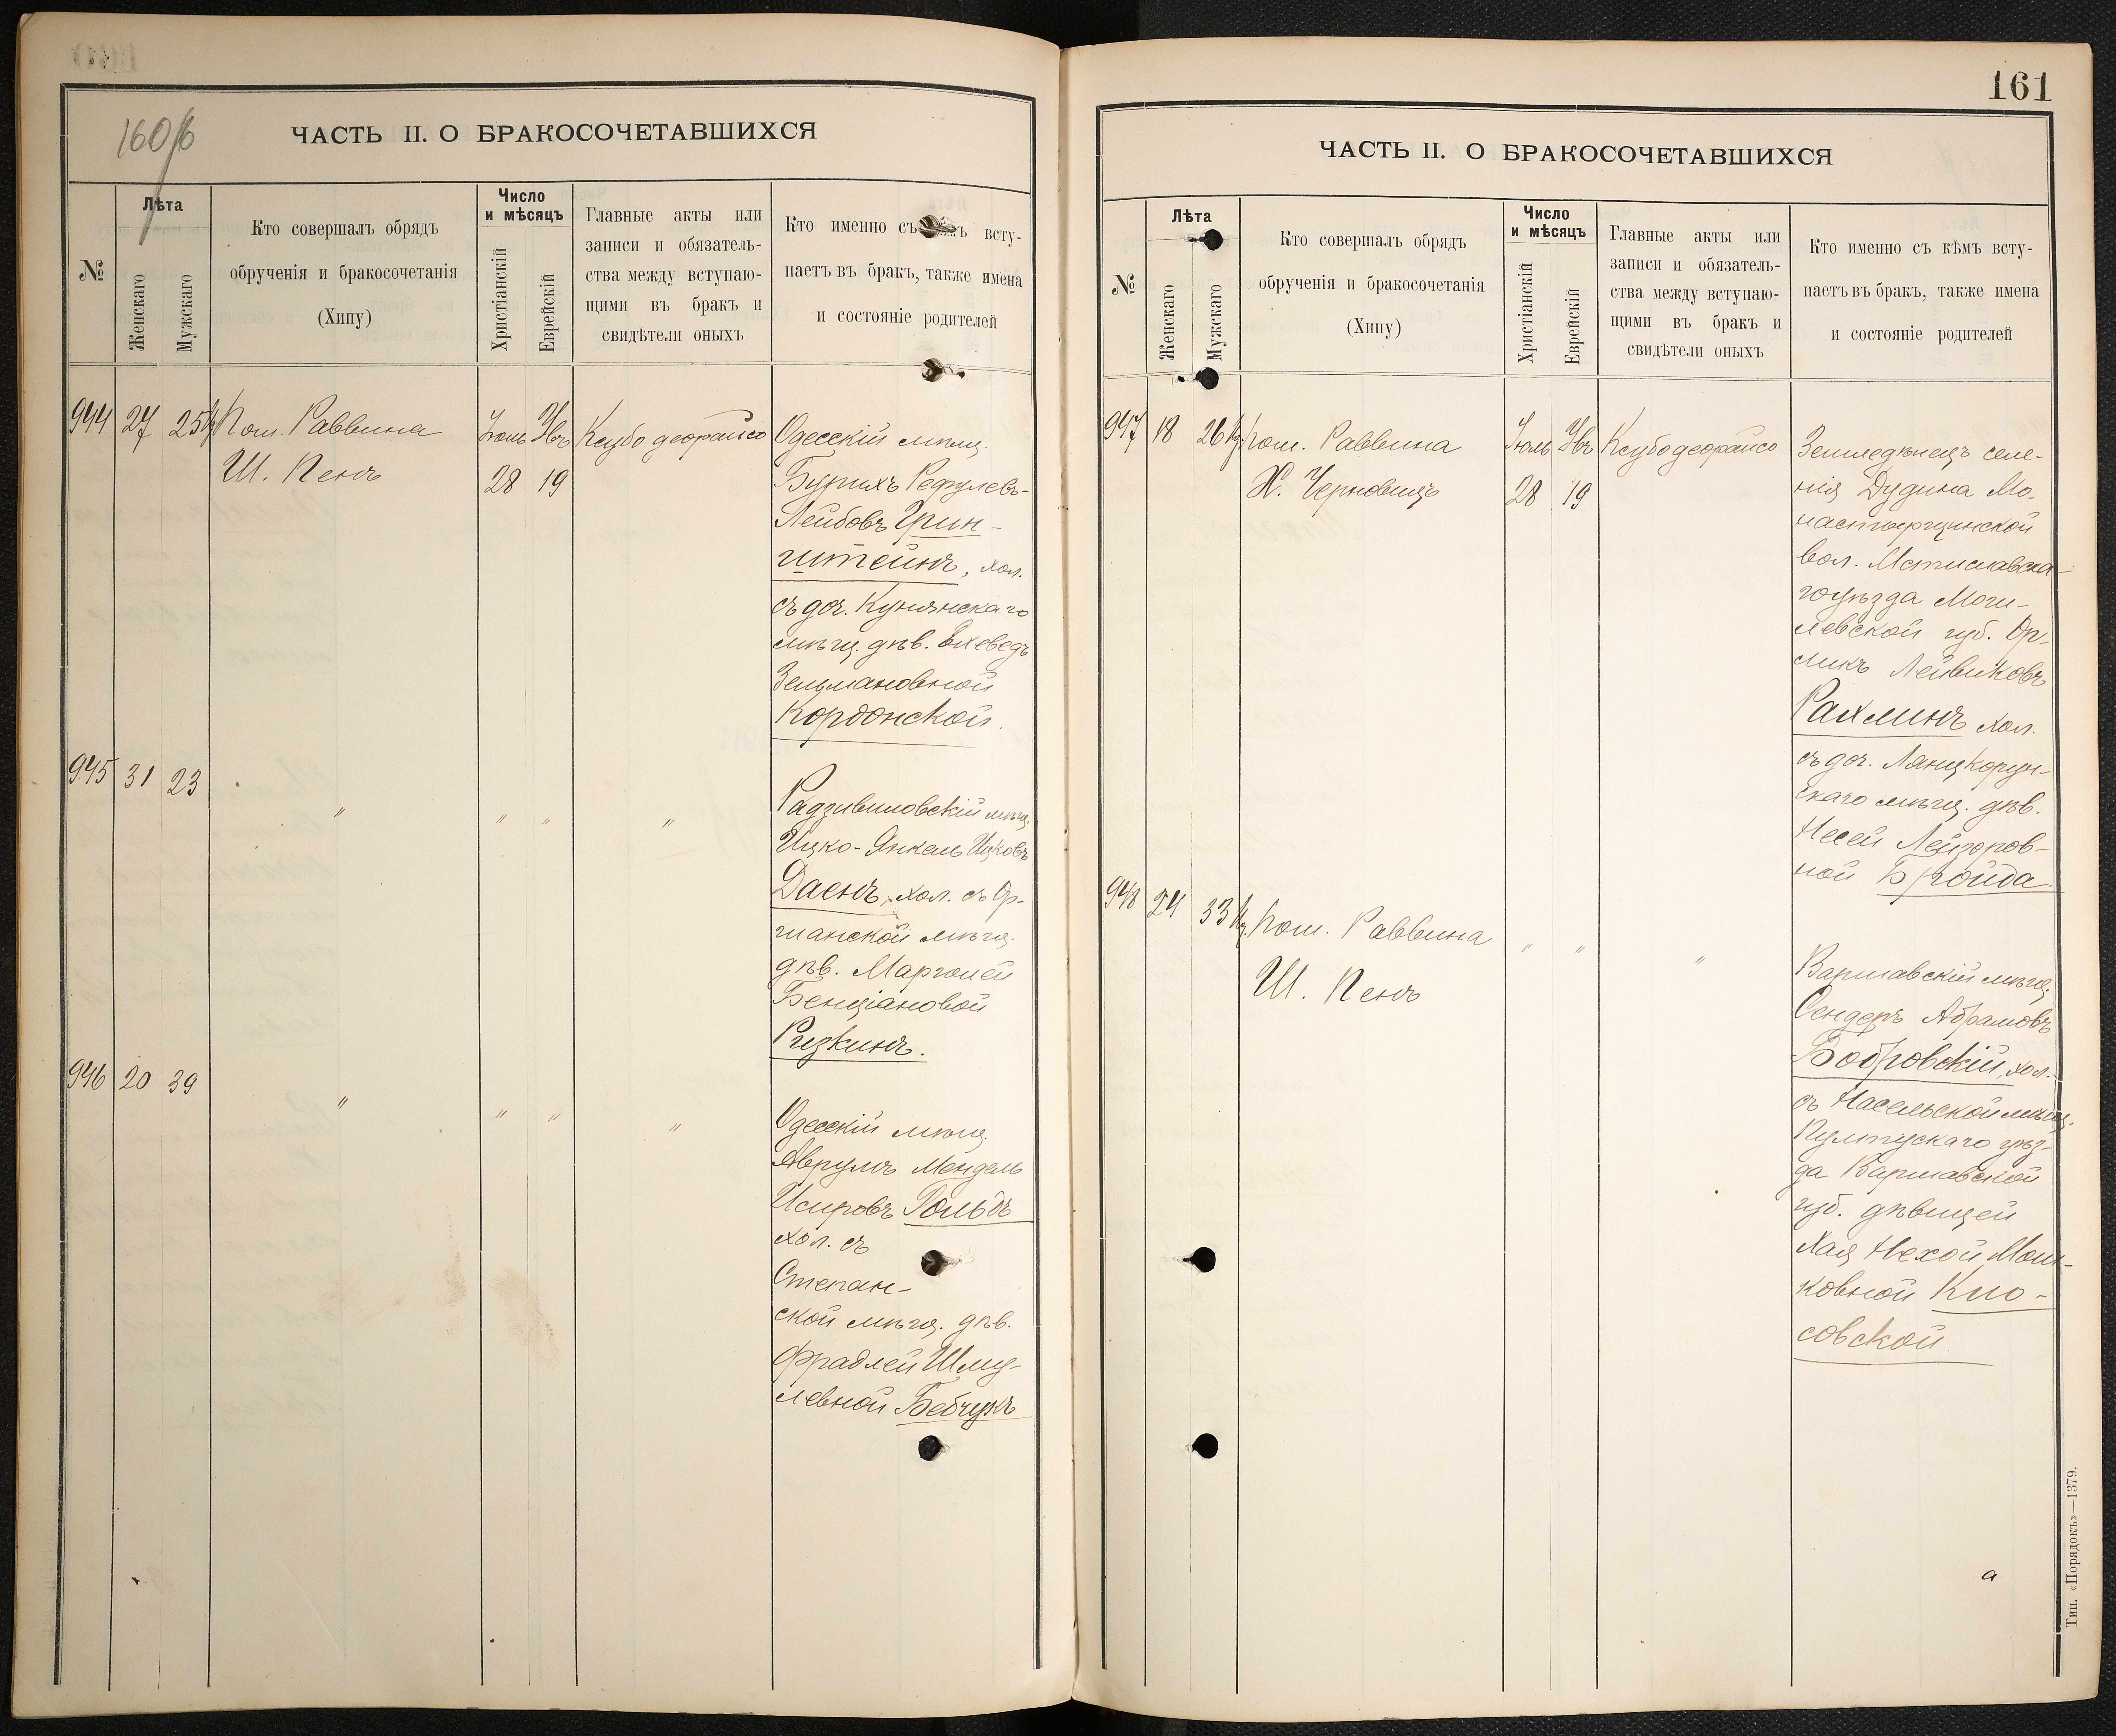 160/б
ЧАСТЬ II. О БРАКОСОЧЕТАВШИХСЯ
№
Лѣта
Женскаго
Мужскаго
Кто совершалъ обрядъ
обрученія и бракосочетанія
(Хипу)
Число
и мѣсяцъ
Христіанскій
Еврейскій
Главные акты или
записи и обязатель-
ства между вступаю-
щими въ бракъ и
свидѣтели оныхъ
Кто именно съ всту-
паетъ въ бракъ, также имена
и состояніе родителей
944 27 25 Пом. Раввина
Ш. Пенъ
Іюль
28 19
Ксубо деорайсо
Одесскій мѣщ.
Бурихъ
Лейбовъ Грин-
штейнъ, хол.
съ доч. Кунянскаго
мѣщ. дѣв. Ехеведъ
Зельмановной
Кордонской.
945 31 23 " " " "
Радзивиловскій мѣщ.
Ицко-Янкель Ицковъ
Даенъ, хол. съ Ор-
шанской мѣщ.
дѣв. Марголей
Бенціановой
Ризкинъ.
946 20 39 " " " "
Одесскій мѣщ.
Аврумъ Мендель
Исировъ Гольдъ
хол. съ
Степан-
ской мѣщ. дѣв.
Фрадлей Шму-
левной Бебчукъ
161
ЧАСТЬ II. О БРАКОСОЧЕТАВШИХСЯ
№
Лѣта
Женскаго
Мужскаго
Кто совершалъ обрядъ
обрученія и бракосочетанія
(Хипу)
Число
и мѣсяцъ
Христіанскій
Еврейскій
Главные акты или
записи и обязатель-
ства между вступаю-
щими въ бракъ и
свидѣтели оныхъ
Кто именно съ кѣмъ всту-
паетъ въ бракъ, также имена
и состояніе родителей
947 18 26 Пом. Раввина
Х. Черновицъ
Іюль
28 19
Ксубо деорайсо
Земледѣлецъ селе-
нія Дудина Мо-
настырщинской
вол. Мстиславска-
го уѣзда Моги-
левской губ. Ор-
ликъ Лейвиковъ
Рахлинъ хол.
съ доч. Лянцкорун-
скаго мѣщ. дѣв.
Несей Лейзоров-
ной Бройда.
948 24 33 Пом. Раввина
Ш. Пенъ
" " "
Варшавскій мѣщ.
Сендеръ Абрамовъ
Бобровскій, хол.
съ Насельской мѣщ.
Пултускаго уѣз-
да Варшавской
губ. дѣвицей
Хая Нехой Мош-
ковной Кио-
совской.
а
Тип. «Порядокъ»—1379.